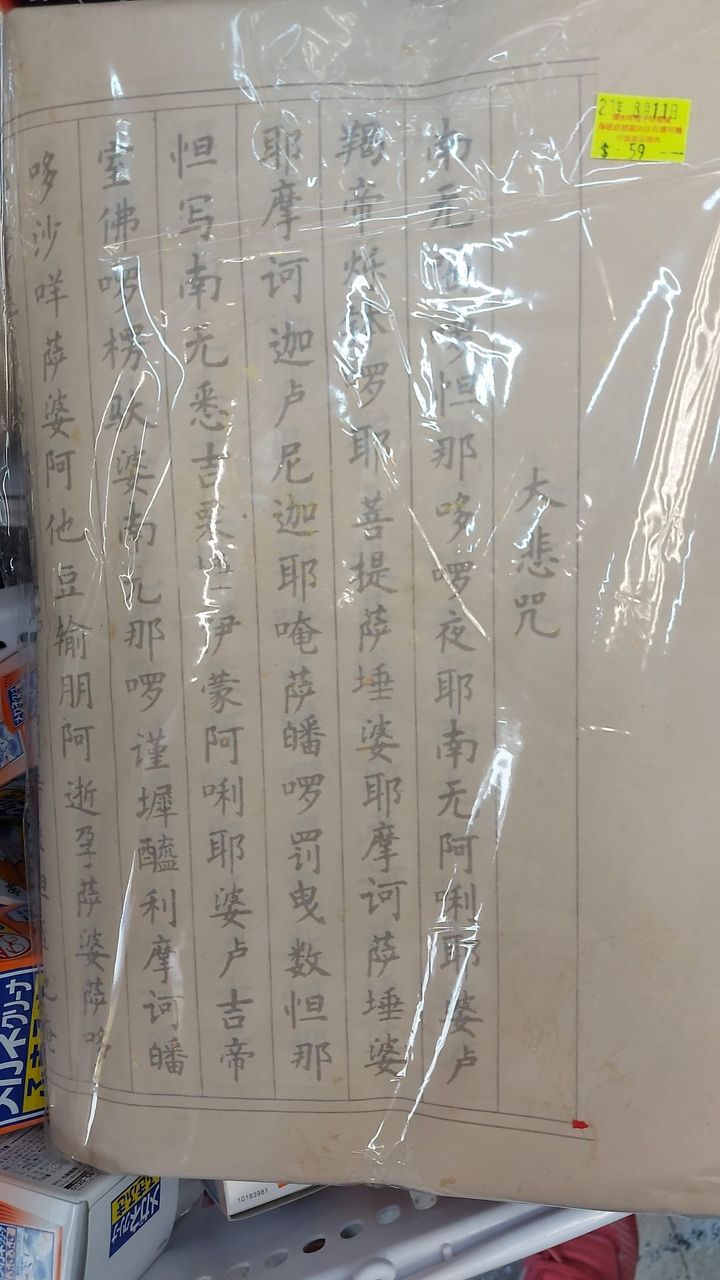 大悲咒
南无怛那哆啰夜耶南无阿唎耶婆卢
羯帝烁钵啰耶菩提萨埵婆耶摩诃萨埵婆
耶摩诃迦卢尼迦耶唵萨皤啰罚曳数怛那
怛写南无悉吉栗伊蒙阿唎耶婆卢吉帝
室佛啰楞驮婆南无那啰谨墀醯利摩诃皤
哆沙咩萨婆阿他豆输朋阿逝孕萨婆萨哆
$ 59
メガネクリーナ
10163961